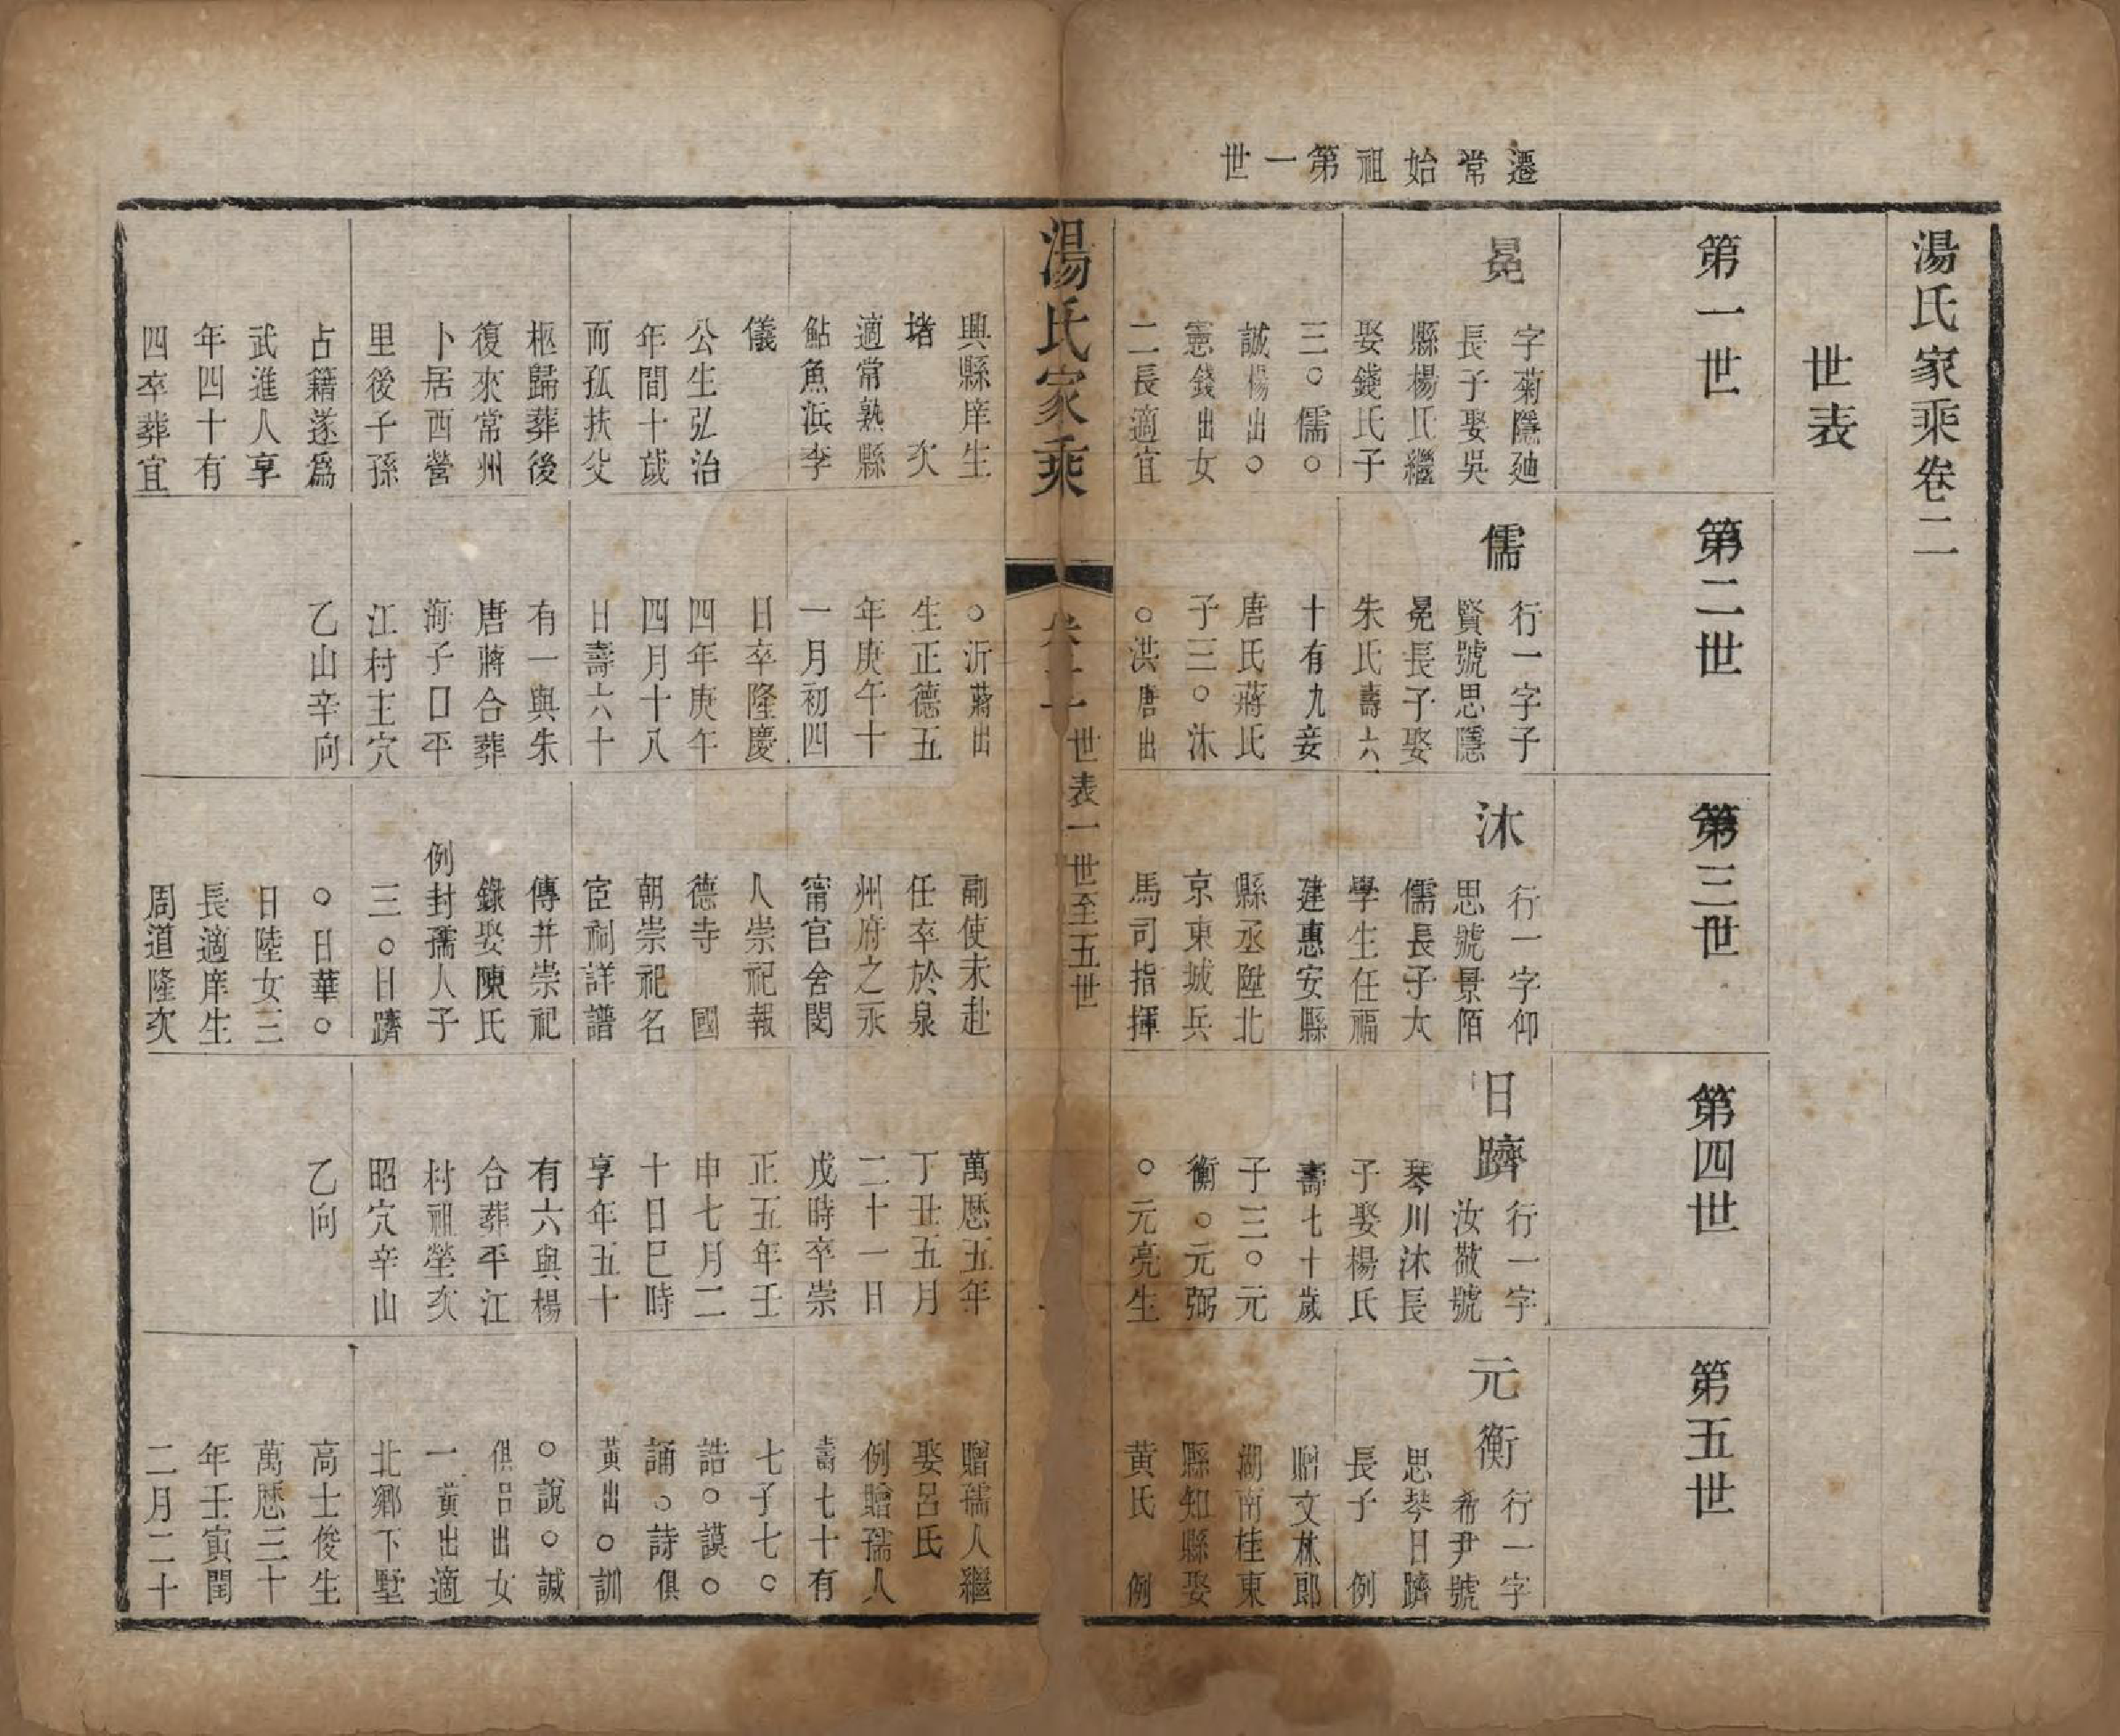 遷常始祖第一世
湯氏家乘卷二
世表
第一世
冕
字菊隱廸
長子娶吳
縣楊氏繼
娶錢氏子
三○儒○
誠楊出○
憲錢出女
二長適宜
興縣庠生
堵　次
適常熟縣
鮎魚浜李
儀
公生弘治
年間十歲
而孤扶父
柩歸葬後
復來常州
卜居西營
里後子孫
占籍遂爲
武進人享
年四十有
四卒葬宜
第二世
儒
行一字子
賢號思隱
冕長子娶
朱氏壽六
十有九妾
唐氏蔣氏
子三○沐
○洪唐出
○沂蔣出
生正德五
年庚午十
一月初四
日卒隆慶
四年庚午
四月十八
日壽六十
有一與朱
唐蔣合葬
海子口平
江村主穴
乙山辛向
第三世
沐
行一字仰
思號景陌
儒長子太
學生任福
建惠安縣
縣丞陞北
京東城兵
馬司指揮
副使未赴
任卒於泉
州府之永
甯官舍閩
人崇祀報
德寺　國
朝崇祀名
宦祠詳譜
傳并崇祀
錄娶陳氏
例封孺人子
三○日躋
○日華○
日陸女三
長適庠生
周道隆次
第四世
日躋
行一字
汝敬號
琴川沐長
子娶楊氏
壽七十歲
子三○元
衡○元弼
○元亮生
萬歷五年
丁丑五月
二十一日
戌時卒崇
正五年壬
申七月二
十日巳時
享年五十
有六與楊
合葬平江
村祖塋亥
昭穴辛山
乙向
第五世
元衡
行一字
希尹號
思琴日躋
長子　例
贈文林郎
湖南桂東
縣知縣娶
黃氏　例
贈孺人繼
娶呂氏
例贈孺人
壽七十有
七子七○
誥○謨○
誦○詩俱
黃出○訓
○說○誠
俱呂出女
一黃出適
北鄉下墅
高士俊生
萬歷三十
年壬寅閏
二月二十
湯氏家乘
卷二　世表一世至五世
一